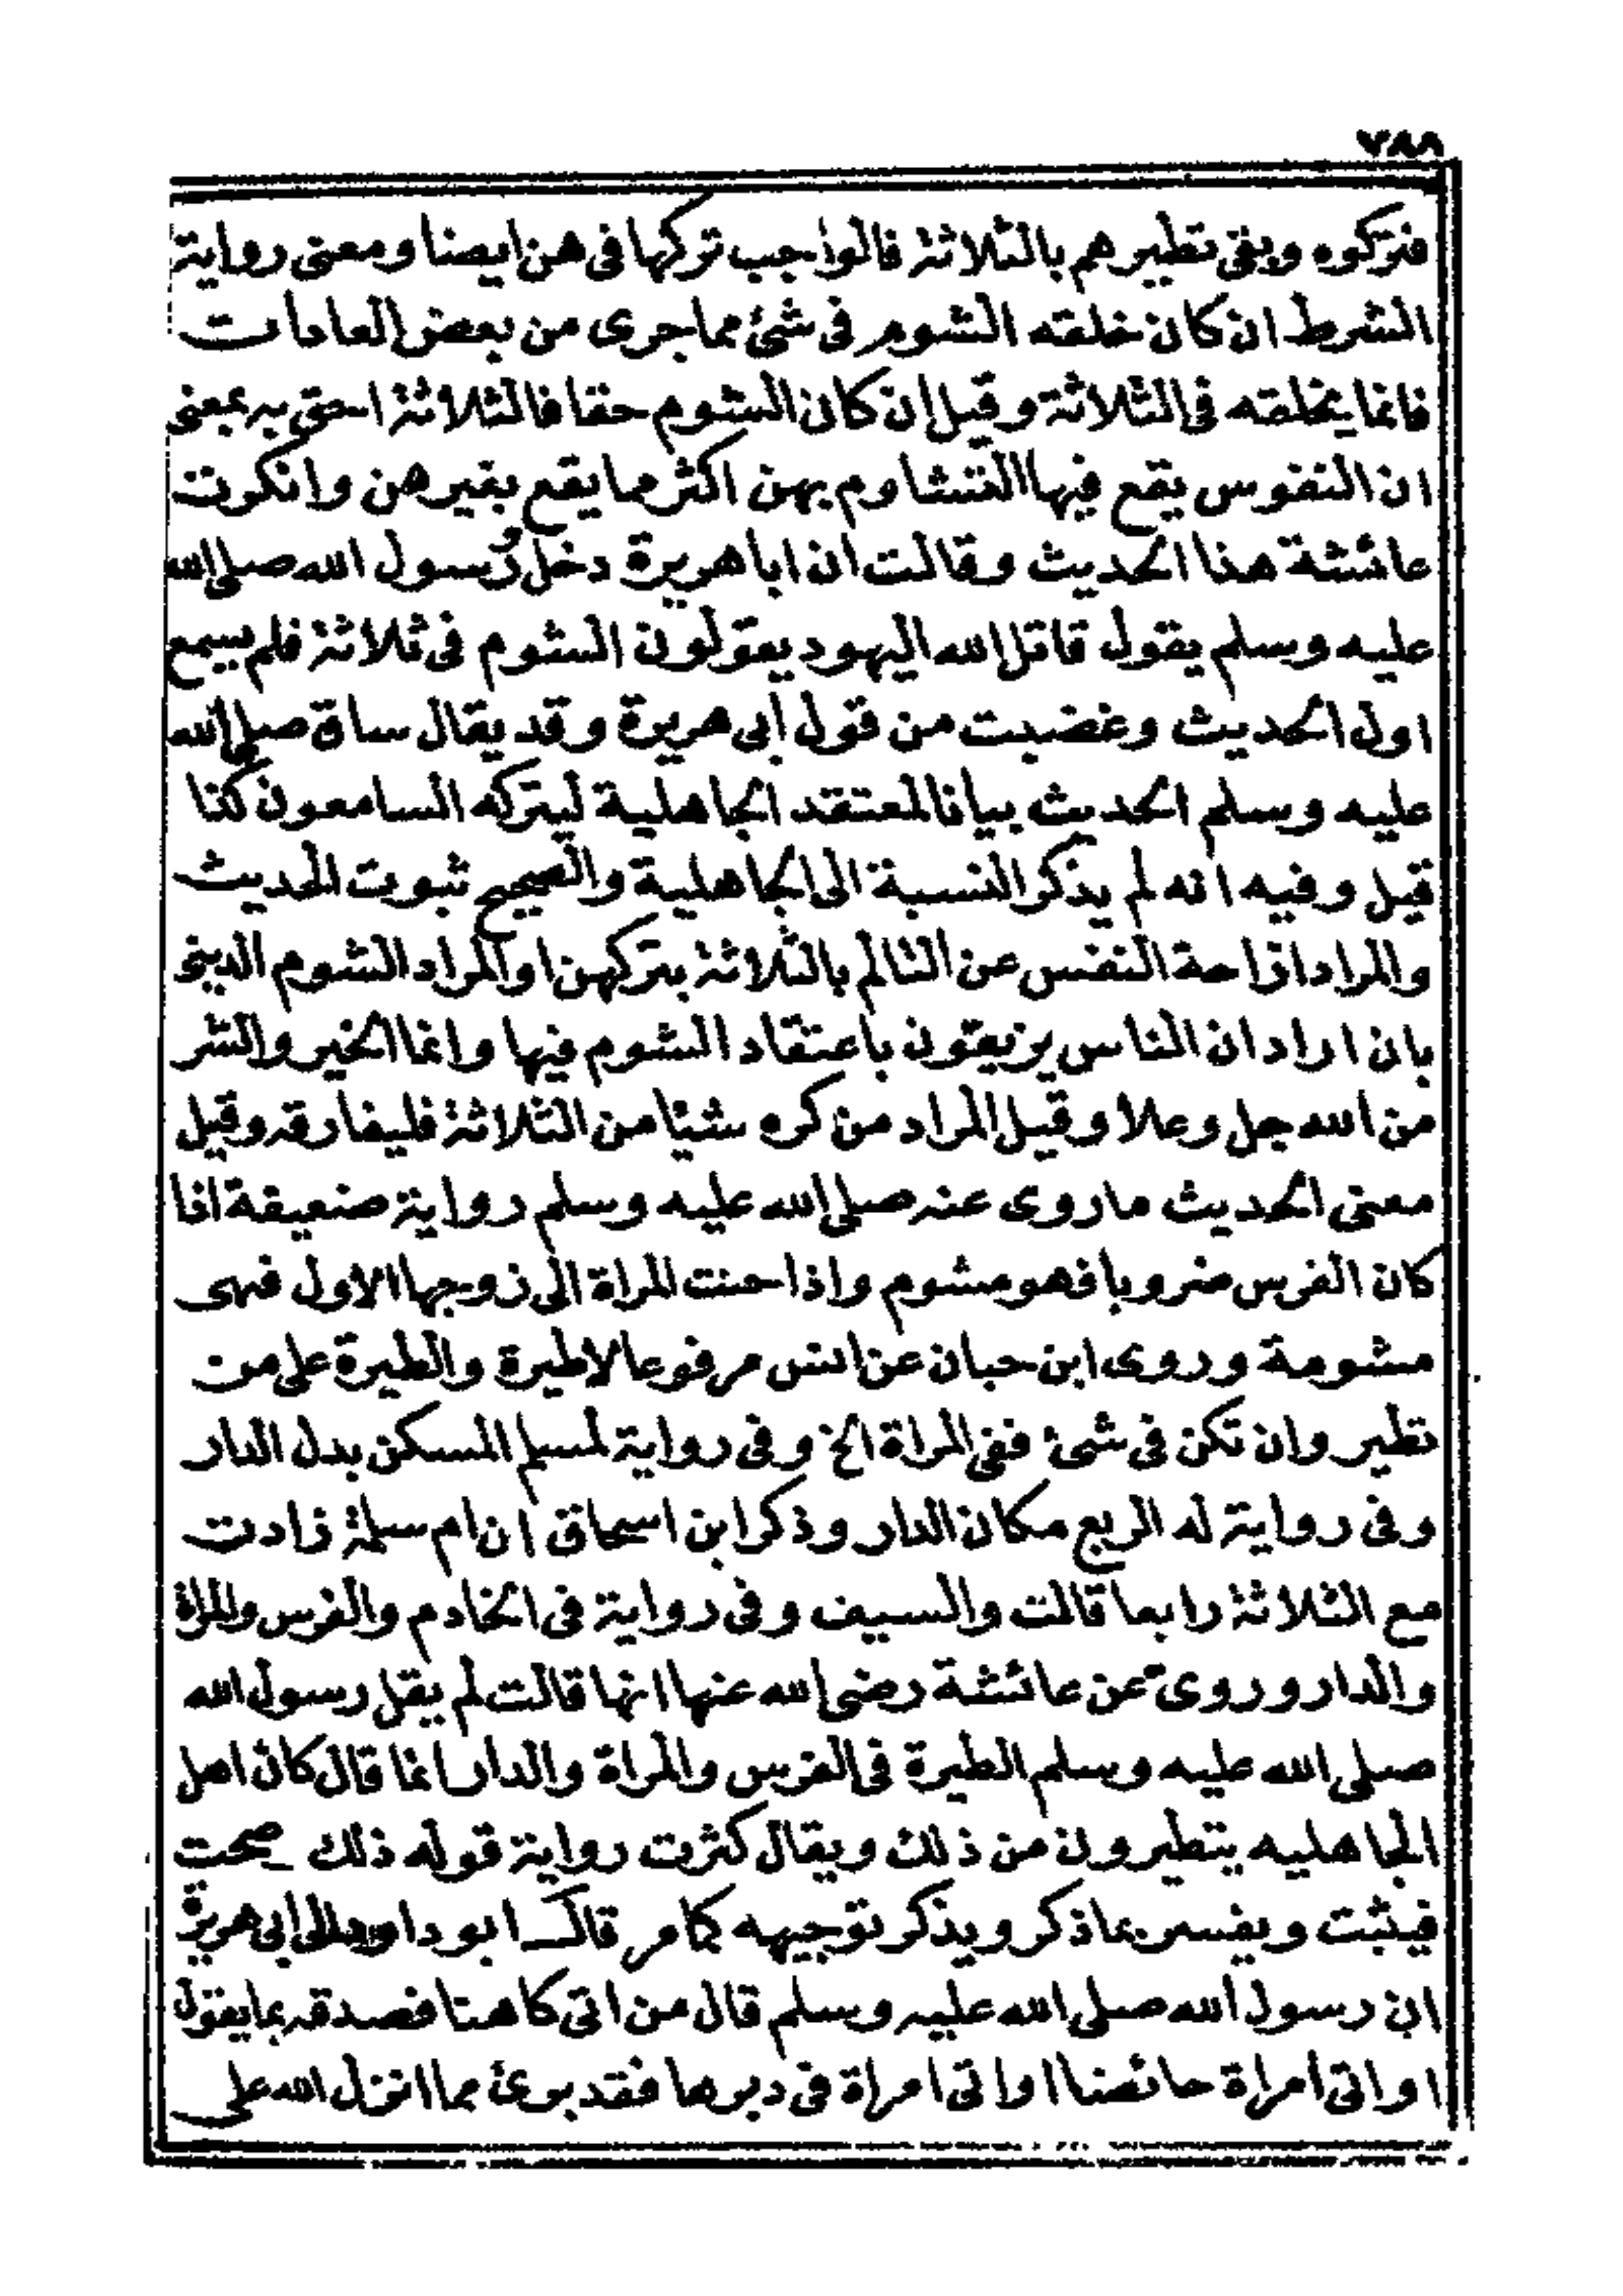 ٧٨٨
فتركوه وبقى تطيرهم بالثلاثة فالواجب تركها فى هن ايضا ومعنى رواية
الشرط ان كان خلقه الشوم فى شئ مما جرى من بعض العادات
فانما يخلقه فى الثلاثة وقيل ان كان الشوم حقا فالثلاثة احق به بمعنى
ان النفوس يقع فيها التشاوم بهن اكثر مما يقع بغيرهن وانكرت
عائشة هذا الحديث وقالت ان ابا هريرة دخل ورسول الله صلى الله
عليه وسلم يقول قاتل الله اليهود يقولون الشوم فى ثلاثة فلم يسمع
اول الحديث وغضبت من قول أبى هريرة وقد يقال ساق صلى الله
عليه وسلم الحديث بيانا لمعتقد الجاهلية ليتركه السامعون كذا
قيل وفيه انه لم يذكر النسبة الى الجاهلية والصحيح ثبوت الحديث
والمراد ازاحة النفس عن التالم بالثلاثة بتركهن او المراد الشوم الدينى
بان اراد ان الناس يزيغون باعتقاد الشوم فيها وانما الخير والشر
من الله جل وعلا وقيل المراد من كره شيئا من الثلاثة فليفارقه وقيل
معنى الحديث ما روى عنه صلى الله عليه وسلم رواية ضعيفة اذا
كان الفرس ضروبا فهو مشوم واذا حنت المراة الى زوجها الاول فهى
مشومة وروى ابن حبان عن انس مرفوعا لاطيرة والطيرة على من
تطير وان تكن فى شئ ففى المراة الخ وفى رواية لمسلم المسكن بدل الدار
وفى رواية له الربع مكان الدار وذكر ابن اسحاق ان ام سلمة زادت
مع الثلاثة رابعا قالت والسيف وفى رواية فى الخادم والفرس والمراة
والدار وروى عن عائشة رضى الله عنها انها قالت لم يقل رسول الله
صلى الله عليه وسلم الطيرة فى الفرس والمراة والدار انما قال كان اهل
الجاهليه يتطيرون من ذلك ويقال كثرت رواية قوله ذلك صحت
فيثبت ويفسر بما ذكر ويذكر توجيهه كما مر قال ابو داود الى ابى هريرة
ان رسول الله صلى الله عليه وسلم قال من اتى كاهنا فصدقه بما يقول
او اتى امراة حائضا او اتى امراة فى دبرها فقد برئ مما انزل الله على